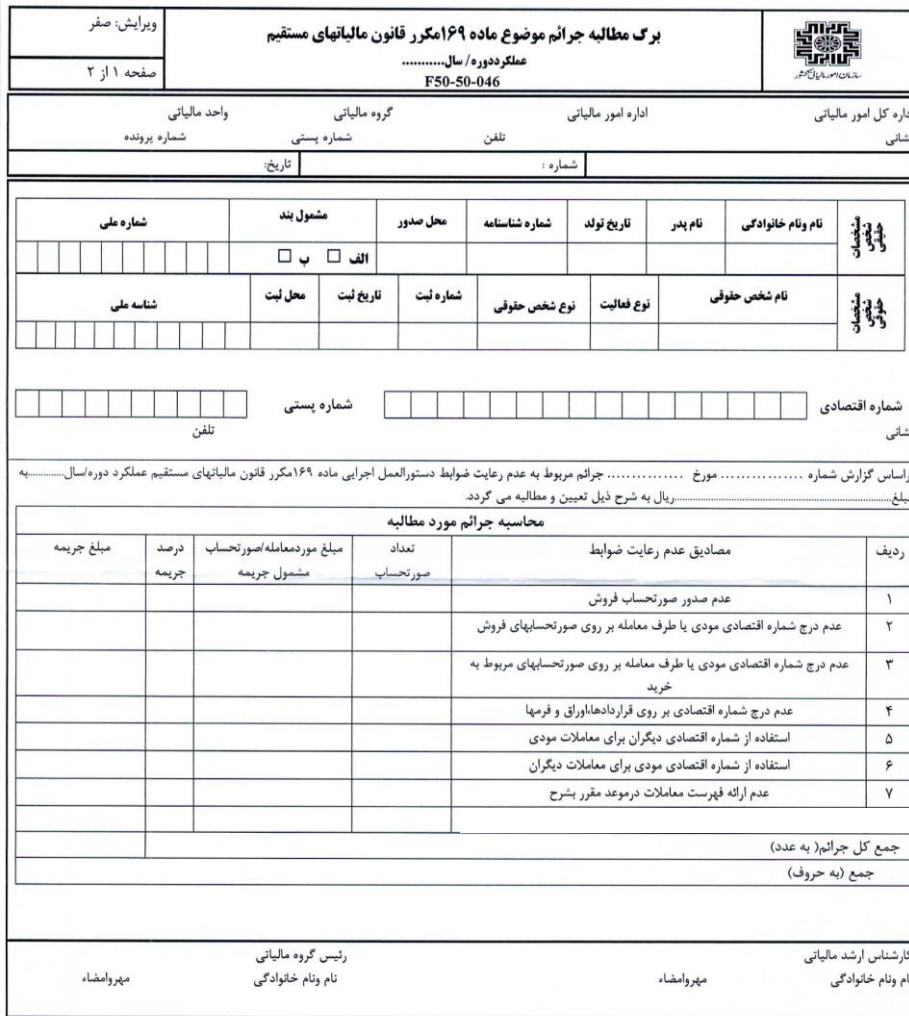 ویرایش: صفر
صفحه ۱ از ۲
برگ مطالبه جرائم موضوع ماده ۱۶۹مکرر قانون مالیاتهای مستقیم
عملکرددوره/ سال...........
F50-50-046
سازمان امور مالیاتی کشور
داره کل امور مالیاتی اداره امور مالیاتی گروه مالیاتی واحد مالیاتی
شانی تلفن شماره پستی شماره پرونده
شماره : تاریخ:
مشخصات شخص حقیقی
نام ونام خانوادگی نام پدر تاریخ تولد شماره شناسنامه محل صدور مشمول بند شماره ملی
الف □ ب □
مشخصات شخص حقوقی
نام شخص حقوقی نوع فعالیت نوع شخص حقوقی شماره ثبت تاریخ ثبت محل ثبت شناسه ملی
شماره اقتصادی شماره پستی
شانی تلفن
راساس گزارش شماره ............... مورخ ............. جرائم مربوط به عدم رعایت ضوابط دستورالعمل اجرایی ماده ۱۶۹مکرر قانون مالیاتهای مستقیم عملکرد دوره/سال............به
مبلغ...............................................................ریال به شرح ذیل تعیین و مطالبه می گردد.
محاسبه جرائم مورد مطالبه
ردیف مصادیق عدم رعایت ضوابط تعداد صورتحساب مبلغ موردمعامله/صورتحساب مشمول جریمه درصد جریمه مبلغ جریمه
۱ عدم صدور صورتحساب فروش
۲ عدم درج شماره اقتصادی مودی یا طرف معامله بر روی صورتحسابهای فروش
۳ عدم درج شماره اقتصادی مودی یا طرف معامله بر روی صورتحسابهای مربوط به
خرید
۴ عدم درج شماره اقتصادی بر روی قراردادها،اوراق و فرمها
۵ استفاده از شماره اقتصادی دیگران برای معاملات مودی
۶ استفاده از شماره اقتصادی مودی برای معاملات دیگران
۷ عدم ارائه فهرست معاملات درموعد مقرر بشرح
جمع کل جرائم( به عدد)
جمع (به حروف)
کارشناس ارشد مالیاتی رئیس گروه مالیاتی
نام ونام خانوادگی مهروامضاء نام ونام خانوادگی مهروامضاء